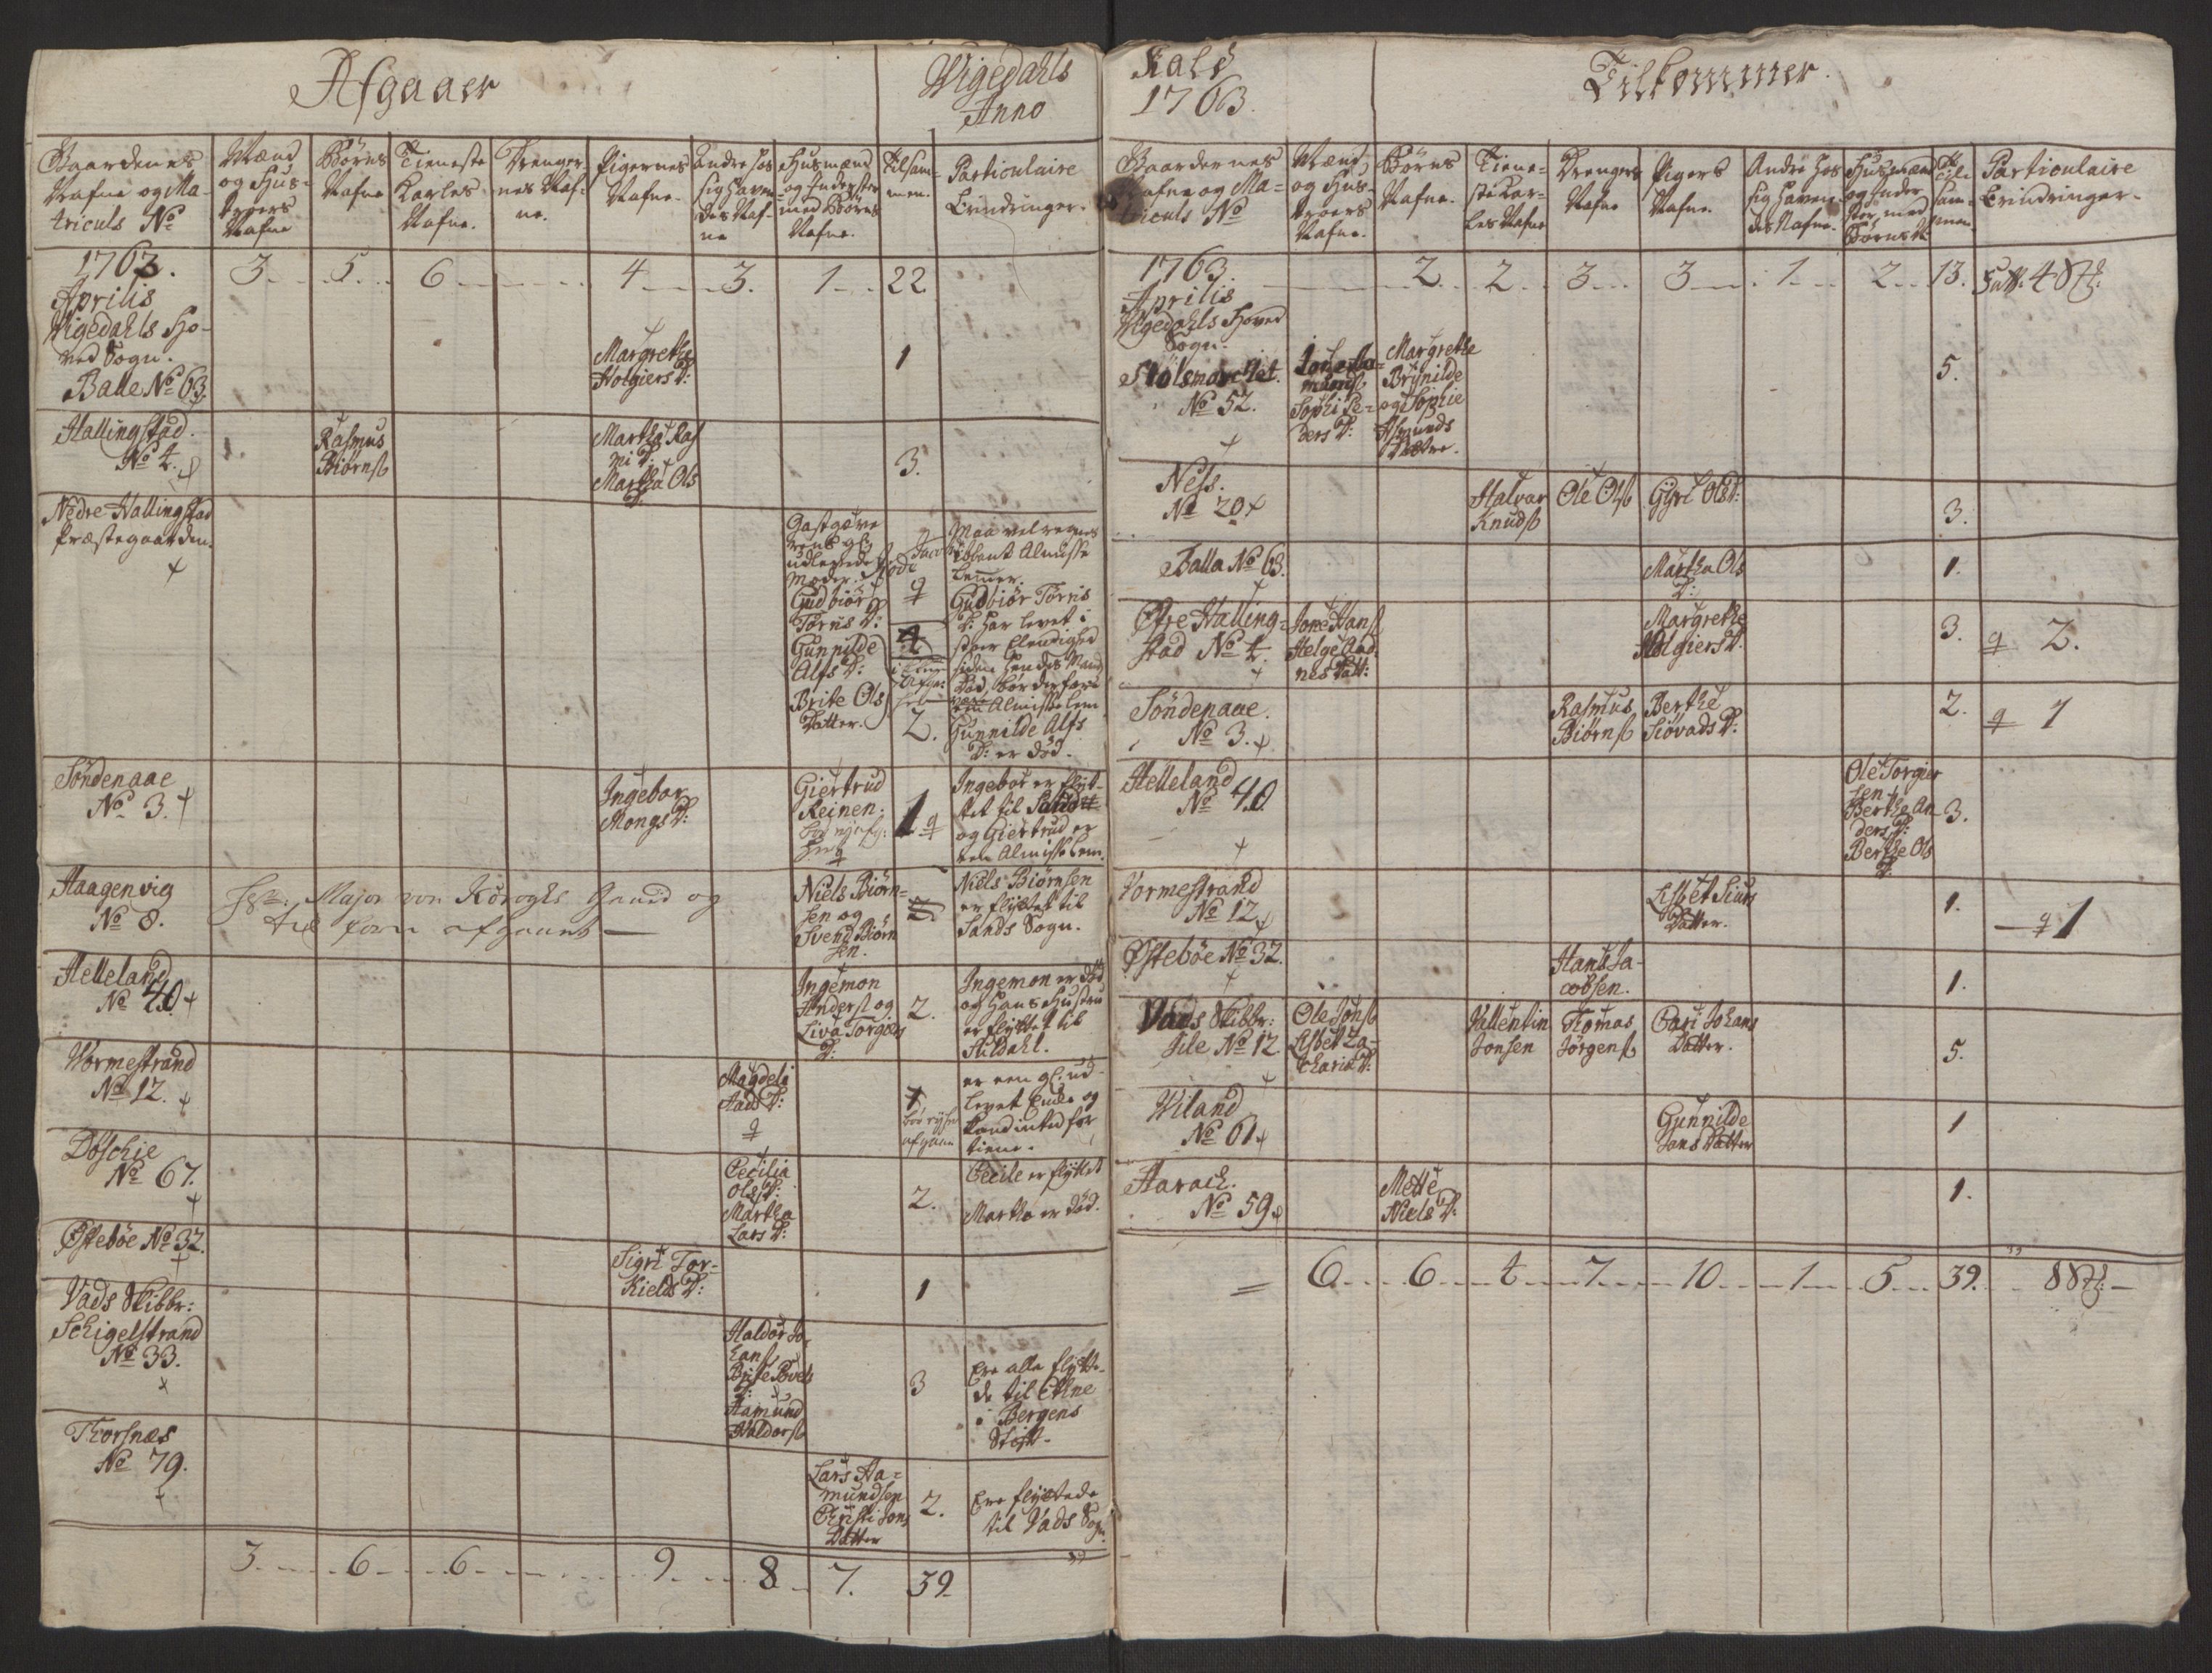 Afgaaer
Wigedahls
Anno
Gaardenes
Nafne og Ma-
triculs No
Mænd
og Hus-
troers
Nafne
Börns
Nafne
Tieneste
Karles
Nafne.
Drenger-
nes Naf-
ne.
Pigernes
Nafne.
Andre hos
sig haven-
des Naf-
ne
Husmænd
og Inderster
med Börns
Nafne.
Tilsam-
men.
Particulaire
Erindringer.
1763.
Aprilis
3 5 6 4 3. 1 22
Wigedahls Ho-
ved Sogn.
Balle No 63.
Margrethe
Holgiers D:
1
Hallingstad.
No 4.
Rasmus
Biörns
Martha Ras
mi D:
Martha Ols
D:
3.
Nedre Hallingstad
Præstegaarden.
Gudbiör
Törris D:
Gunnilde
Alfs D:
Brite Ols
Datter.
2.
Maa vel regnes
iblant Almisse
Lemmer.
Gudbiör Törris
D: har levet i
stoer Elendighed
siden hendes Mand
Död, bör derfore
være Almisselem
Gunnilde Alfs
D: er död.
Söndenaae
No 3.
Ingebor
Mongs D:
Giertrud
Reinen.
1
Ingebor er flyt-
tet til Sand
og Giertrud er
een Almisse Lem.
Haagenvig
No 8.
Major von Kroghs
Niels Biörn-
sen og
Svend Biörn
sen.
Niels Biörnsen
er flyttet til
Sands Sogn.
Helleland
No 40
Ingemon
Anders og
Liva Torgers
D:
2.
Ingemon er död
og hans Hustru
er flyttet til
Sildahl.
Wormestrand
No 12.
Magdeli
Aads D:
er een gl. ud-
levet Enke og
kand intet for
tiene.
Döschie
No 67.
Cecilia
Ols D:
Martha
Lars D:
2.
Cecile er flyttet
Martha er död.
Östeböe No 32.
Sigri Tor-
kields D:
1
Vads Skibbr:
Schigelstrand
No 33.
Haldor Jo
hans
Brite Povels
D:
Aamund
Haldors
3
Ere alle flytte-
de til Etne
i Bergens
Stift.
Thorsnæs
No 79.
Lars Aa-
mundsen
Christi Jons
Datter
2.
Ere flyttede
til Vads Sogn.
3 6 6 9 8 7. 39
Kald
1763.
Tilkommer.
Gaardernes
Nafne og Ma-
triculs No
Mænd
og Hus-
troers
Nafne.
Börns
Nafne.
Tiene-
ste Kar-
les Nafne
Drengers
Nafne
Pigers
Nafne.
Andre hos
sig haven-
des Nafne.
Husmænd
og Inder-
ster med
Börns N.
Til-
sam-
men.
Particulaire
Erindringer.
1763.
Aprilis
2. 2 3 3 1 2 13.
Wigedahls Hoved
Sogn.
Stölsmarchet.
No 52.
Sophi Pe-
ders D:
Margrethe
Brÿnilde
og Sophie
Asmunds
Dötre.
5.
Ness.
No 20
Halvar
Knuds
Ole Ols
Gÿri Ols D:
3.
Balla No 63.
Martha Ols
D:
1.
Öfre Halling-
stad No 4.
Jone Hans
Helge Aad
nes Datt:
Margrethe
Holgiers D.
3.
2.
Söndenaae.
No 3.
Rasmus
Biörns
Berthe
Siövads D:
2.
1
Helleland
No 40
Ole Torgier
sen
Berthe An
ders D:
Berthe Ols
D:
3.
Wormestrand
No 12
Lisbet Siurs
Datter.
1.
1
Östeböe No 32.
Hans Ja-
cobsen.
1.
Vads Skibbr:
Ilie No 12
Ole Jons
Lisbet Za-
charia D:
Vallentin
Jonsen
Thomas
Jörgens
Pari Johans
Datter.
5.
Wiland
No 61
Gunnilde
Jans Datter
1
Aarach.
No 59
Mette
Niels D:
1.
6 6 4 7 10 1 5 39.